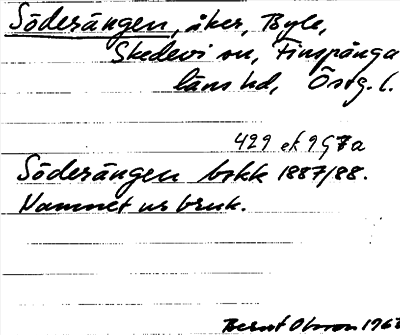 Söderängen, åker, Byle,
Skedevi sn, Finspånga
läns hd, Östg. l.
429 ek 9G7a
Söderängen bskk 1887/88.
Namnet ur bruk.
Bernt Olsson